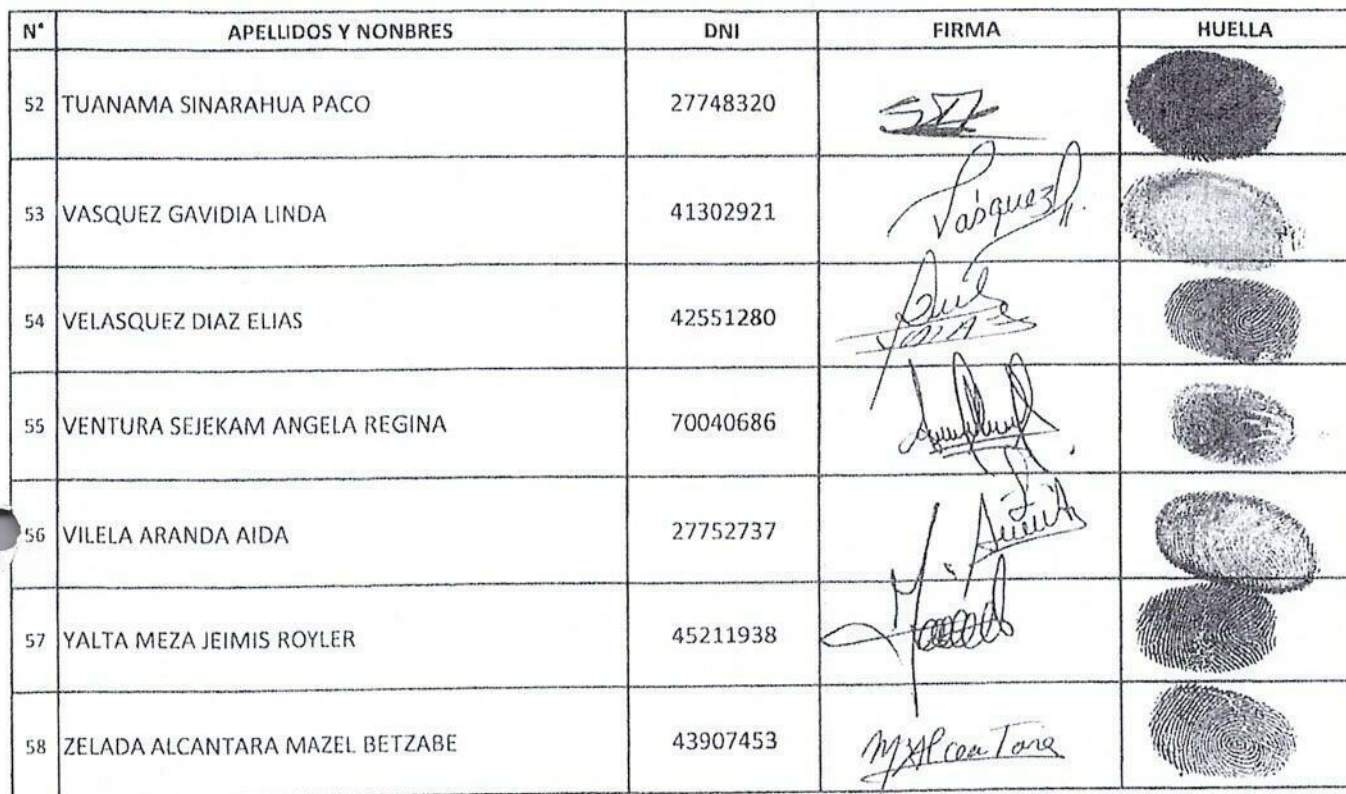 N° APELLIDOS Y NONBRES DNI FIRMA HUELLA
52 TUANAMA SINARAHUA PACO 27748320
53 VASQUEZ GAVIDIA LINDA 41302921 Vasquez
54 VELASQUEZ DIAZ ELIAS 42551280
55 VENTURA SEJEKAM ANGELA REGINA 70040686
56 VILELA ARANDA AIDA 27752737
57 YALTA MEZA JEIMIS ROYLER 45211938
58 ZELADA ALCANTARA MAZEL BETZABE 43907453